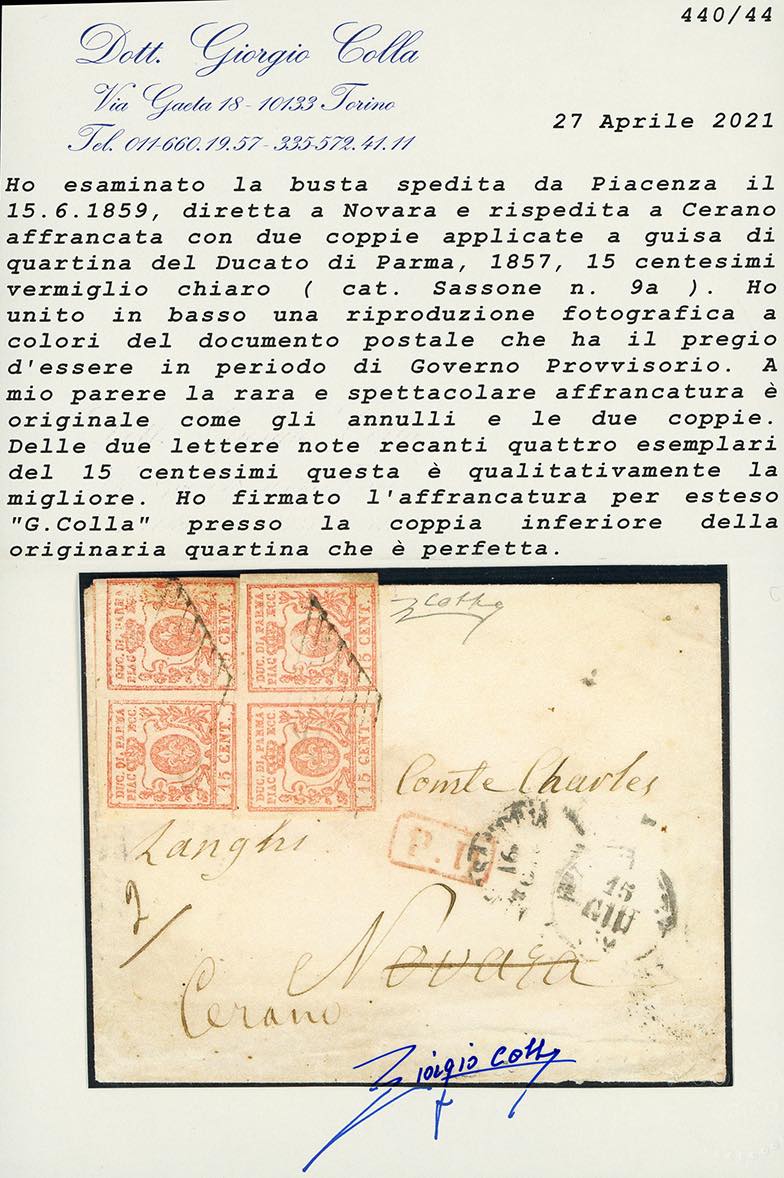 440/44
Dott. Giorgio Colla
Via Gaeta 18 - 10133 Torino
Tel. 011-660.19.57 - 335-572.41.11
27 Aprile 2021
Ho esaminato la busta spedita da Piacenza il
15.6.1859, diretta a Novara e rispedita a Cerano
affrancata con due coppie applicate a guisa di
quartina del Ducato di Parma, 1857, 15 centesimi
vermiglio chiaro ( cat. Sassone n. 9a ). Ho
unito in basso una riproduzione fotografica a
colori del documento postale che ha il pregio
d'essere in periodo di Governo Provvisorio. A
mio parere la rara e spettacolare affrancatura è
originale come gli annulli e le due coppie.
Delle due lettere note recanti quattro esemplari
del 15 centesimi questa è qualitativamente la
migliore. Ho firmato l'affrancatura per esteso
"G.Colla" presso la coppia inferiore della
originaria quartina che è perfetta.
DUC. DI PARMA
PIAC ECC.
15 CENT.
DUC. DI PARMA
PIAC ECC.
15 CENT.
DUC. DI PARMA
PIAC ECC.
15 CENT.
DUC. DI PARMA
PIAC ECC.
15 CENT.
G Colla
Comte Charles
Langhi
P.
16
15
GIU
2/
Novara
Cerano
Giorgio Colla